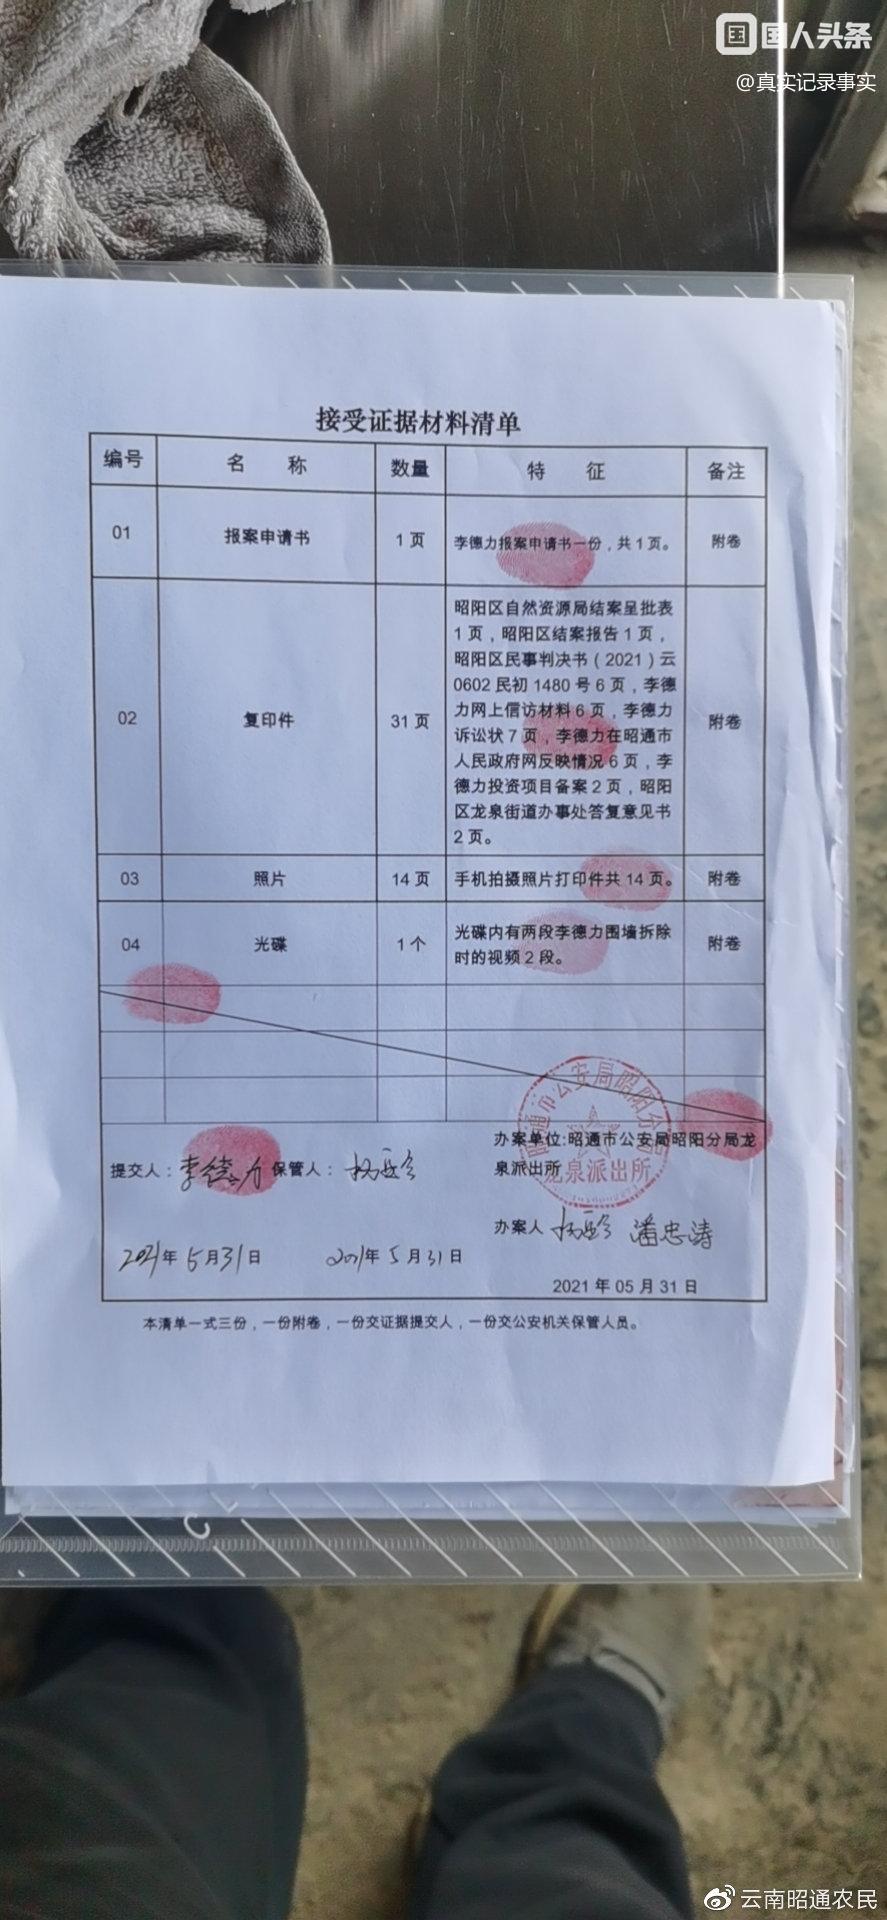 国 国人头条
@真实记录事实
接受证据材料清单
编号 名 称 数量 特 征 备注
01 报案申请书 1 页 李德力报案申请书一份，共 1 页。 附卷
02 复印件 31 页 附卷
昭阳区自然资源局结案呈批表
1 页，昭阳区结案报告 1 页，
昭阳区民事判决书（2021）云
0602 民初 1480 号 6 页，李德
力网上信访材料 6 页，李德力
诉讼状 7 页，李德力在昭通市
人民政府网反映情况 6 页，李
德力投资项目备案 2 页，昭阳
区龙泉街道办事处答复意见书
2 页。
03 照片 14 页 手机拍摄照片打印件共 14 页。 附卷
04 光碟 1 个 附卷
光碟内有两段李德力围墙拆除
时的视频 2 段。
昭通市公安局昭阳分局
龙泉派出所
办案单位:昭通市公安局昭阳分局龙
泉派出所
提交人：李德力 保管人：
办案人 潘忠涛
2021年 5月31日 2021年 5月 31日
2021 年 05 月 31 日
本清单一式三份，一份附卷，一份交证据提交人，一份交公安机关保管人员。
云南昭通农民